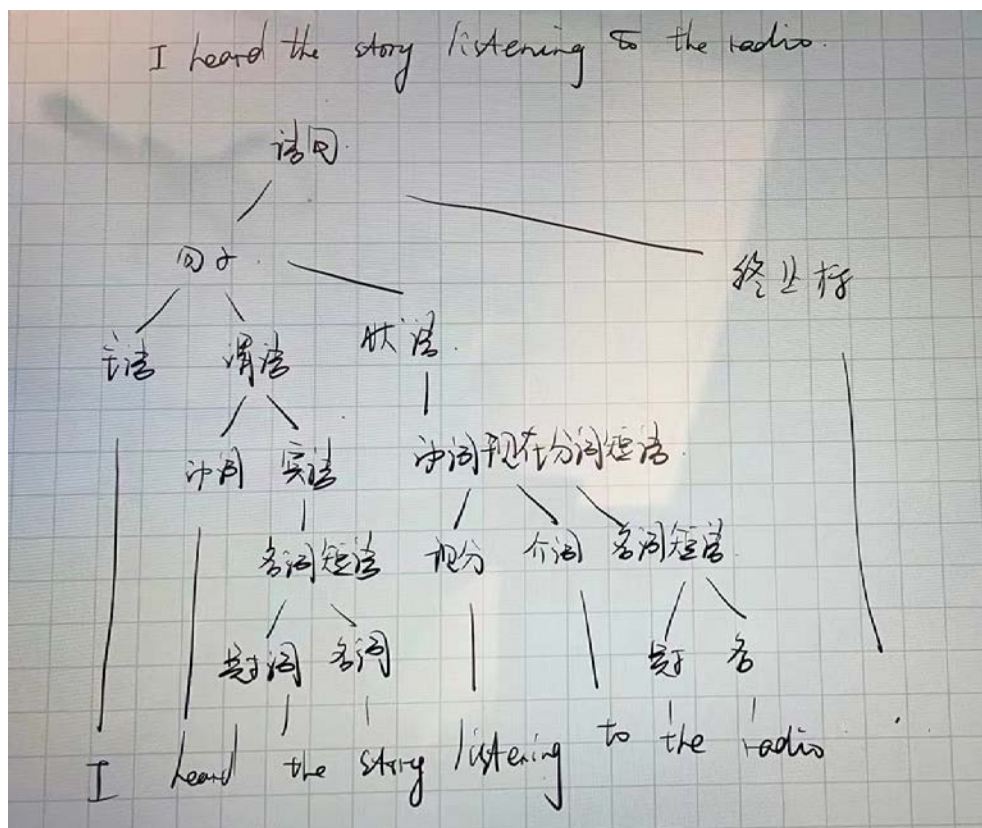 I heard the story listening to the radio.
语句
句子 终止标
主语 谓语 状语
动词 宾语 动词现在分词短语
名词短语 现分 介词 名词短语
冠词 名词 冠 名
I heard the story listening to the radio .